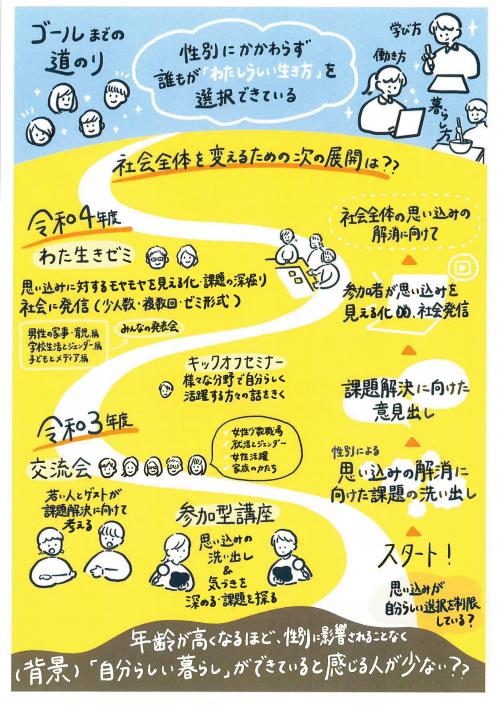 ゴールまでの
道のり
性別にかかわらず
誰もが「わたしらしい生き方」を
選択できている
学び方
働き方
暮らし方
社会全体を変えるための次の展開は??
令和4年度
わた生きゼミ
思い込みに対するモヤモヤを見える化・課題の深掘り
社会に発信(少人数・複数回・ゼミ形式)
男性の家事・育児編
学校生活とジェンダー編
子どもとメディア編
みんなの発表会
キックオフセミナー
様々な分野で自分らしく
活躍する方々の話をきく
令和3年度
交流会
女性少数職場
就活とジェンダー
女性活躍
家族のかたち
若い人とゲストが
課題解決に向けて
考える
参加型講座
思い込みの
洗い出し
&
気づきを
深める・課題を探る
社会全体の思い込みの
解消に向けて
参加者が思い込みを
見える化 社会発信
課題解決に向けた
意見出し
性別による
思い込みの解消に
向けた課題の洗い出し
スタート!
思い込みが
自分らしい選択を制限
している?
年齢が高くなるほど、性別に影響されることなく
(背景)「自分らしい暮らし」ができていると感じる人が少ない??